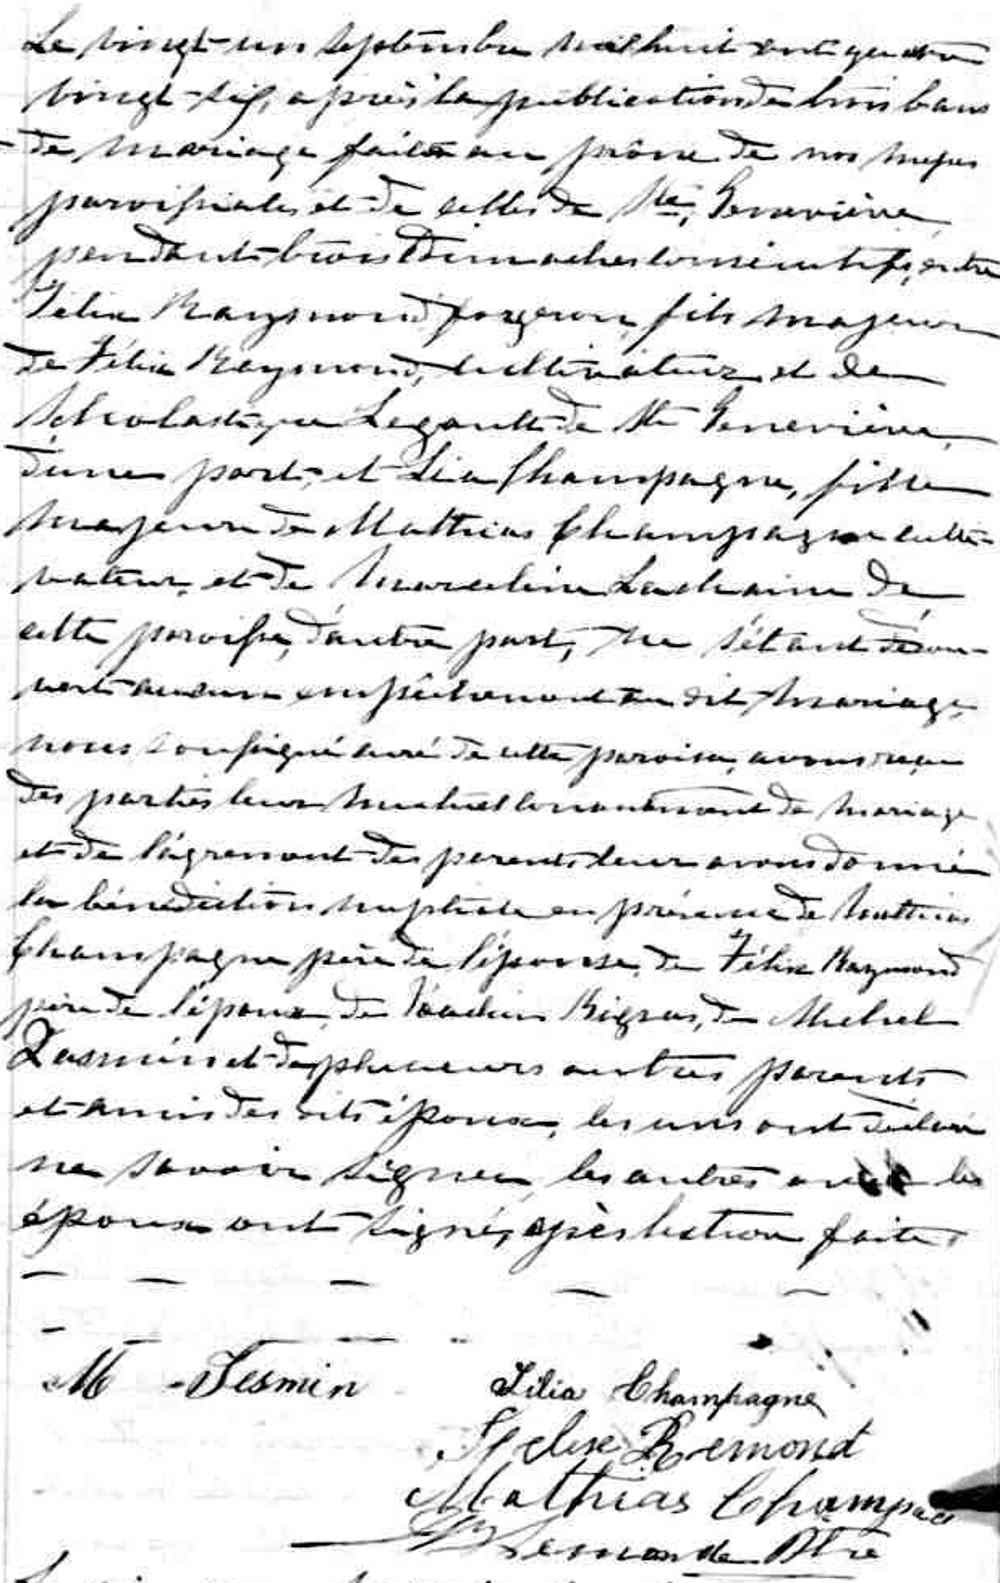 Le vingt-un septembre mil huit cent quatre
vingt-six, après la publication de trois bans
de mariage faite au prône de nos messes
paroissiales et de celles de Ste. Geneviève
pendant trois dimanches consécutifs, entre
Félix Raymond forgeron, fils majeur
de Félix Raymond, cultivateur et de
Scholastique Legault de Ste Geneviève,
d'une part, et Lia Champagne, fille
majeure de Mathias Champagne culti-
vateur, et de Marceline Lachaine de
cette paroisse, d'autre part, ne s'étant décou-
vert aucun empêchement au dit mariage,
nous soussigné curé de cette paroisse, avons reçu
des parties leur mutuel consentement de mariage
et de l'agrément des parents leur avons donné
la bénédiction nuptiale en présence de Mathias
Champagne père de l'épouse, de Félix Raymond
père de l'époux, de Bigras, de Michel
Jasmin et de plusieurs autres parents
et amis des dits époux, les uns ont déclaré
ne savoir signer, les autres avec les
époux ont signé, après lecture faite.
M Jesmin
Lilia Champagne
Felix Remond
Mathias Champag
Ptre